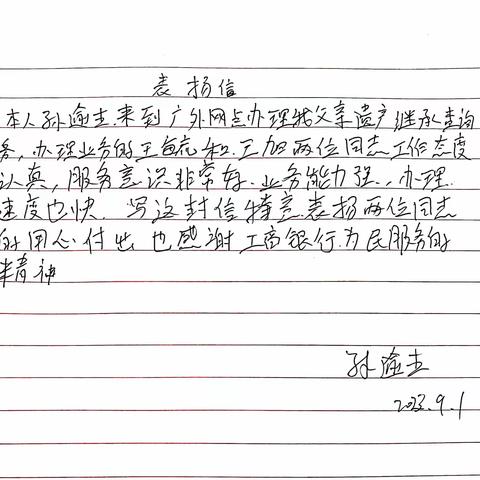 表扬信
本人孙逾圭来到广外网点办理我父亲遗产继承查询
务,办理业务的王毓和王旭两位同志工作态度
认真,服务意识非常好.业务能力强.办理.
速度也快.写这封信特意表扬两位同志
的用心付出也感谢工商银行为民服务的
精神
孙逾圭
2023.9.1